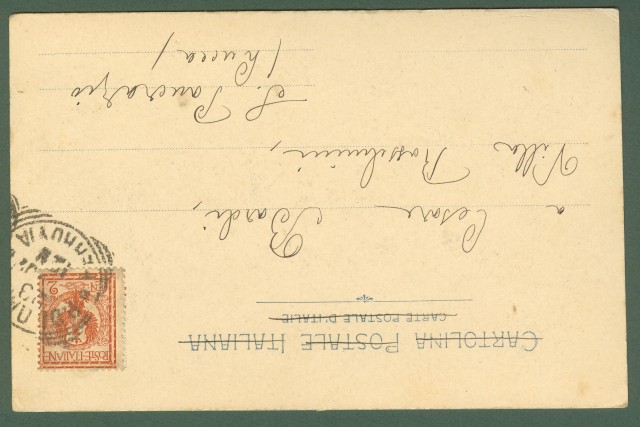 CARTOLINA POSTALE ITALIANA
CARTE POSTALE D'ITALIE
a Cesare Bardi,
Villa Rosselmini,
S. Pancrazio
(Lucca)
POSTE ITALIANE
2
FERROVIA